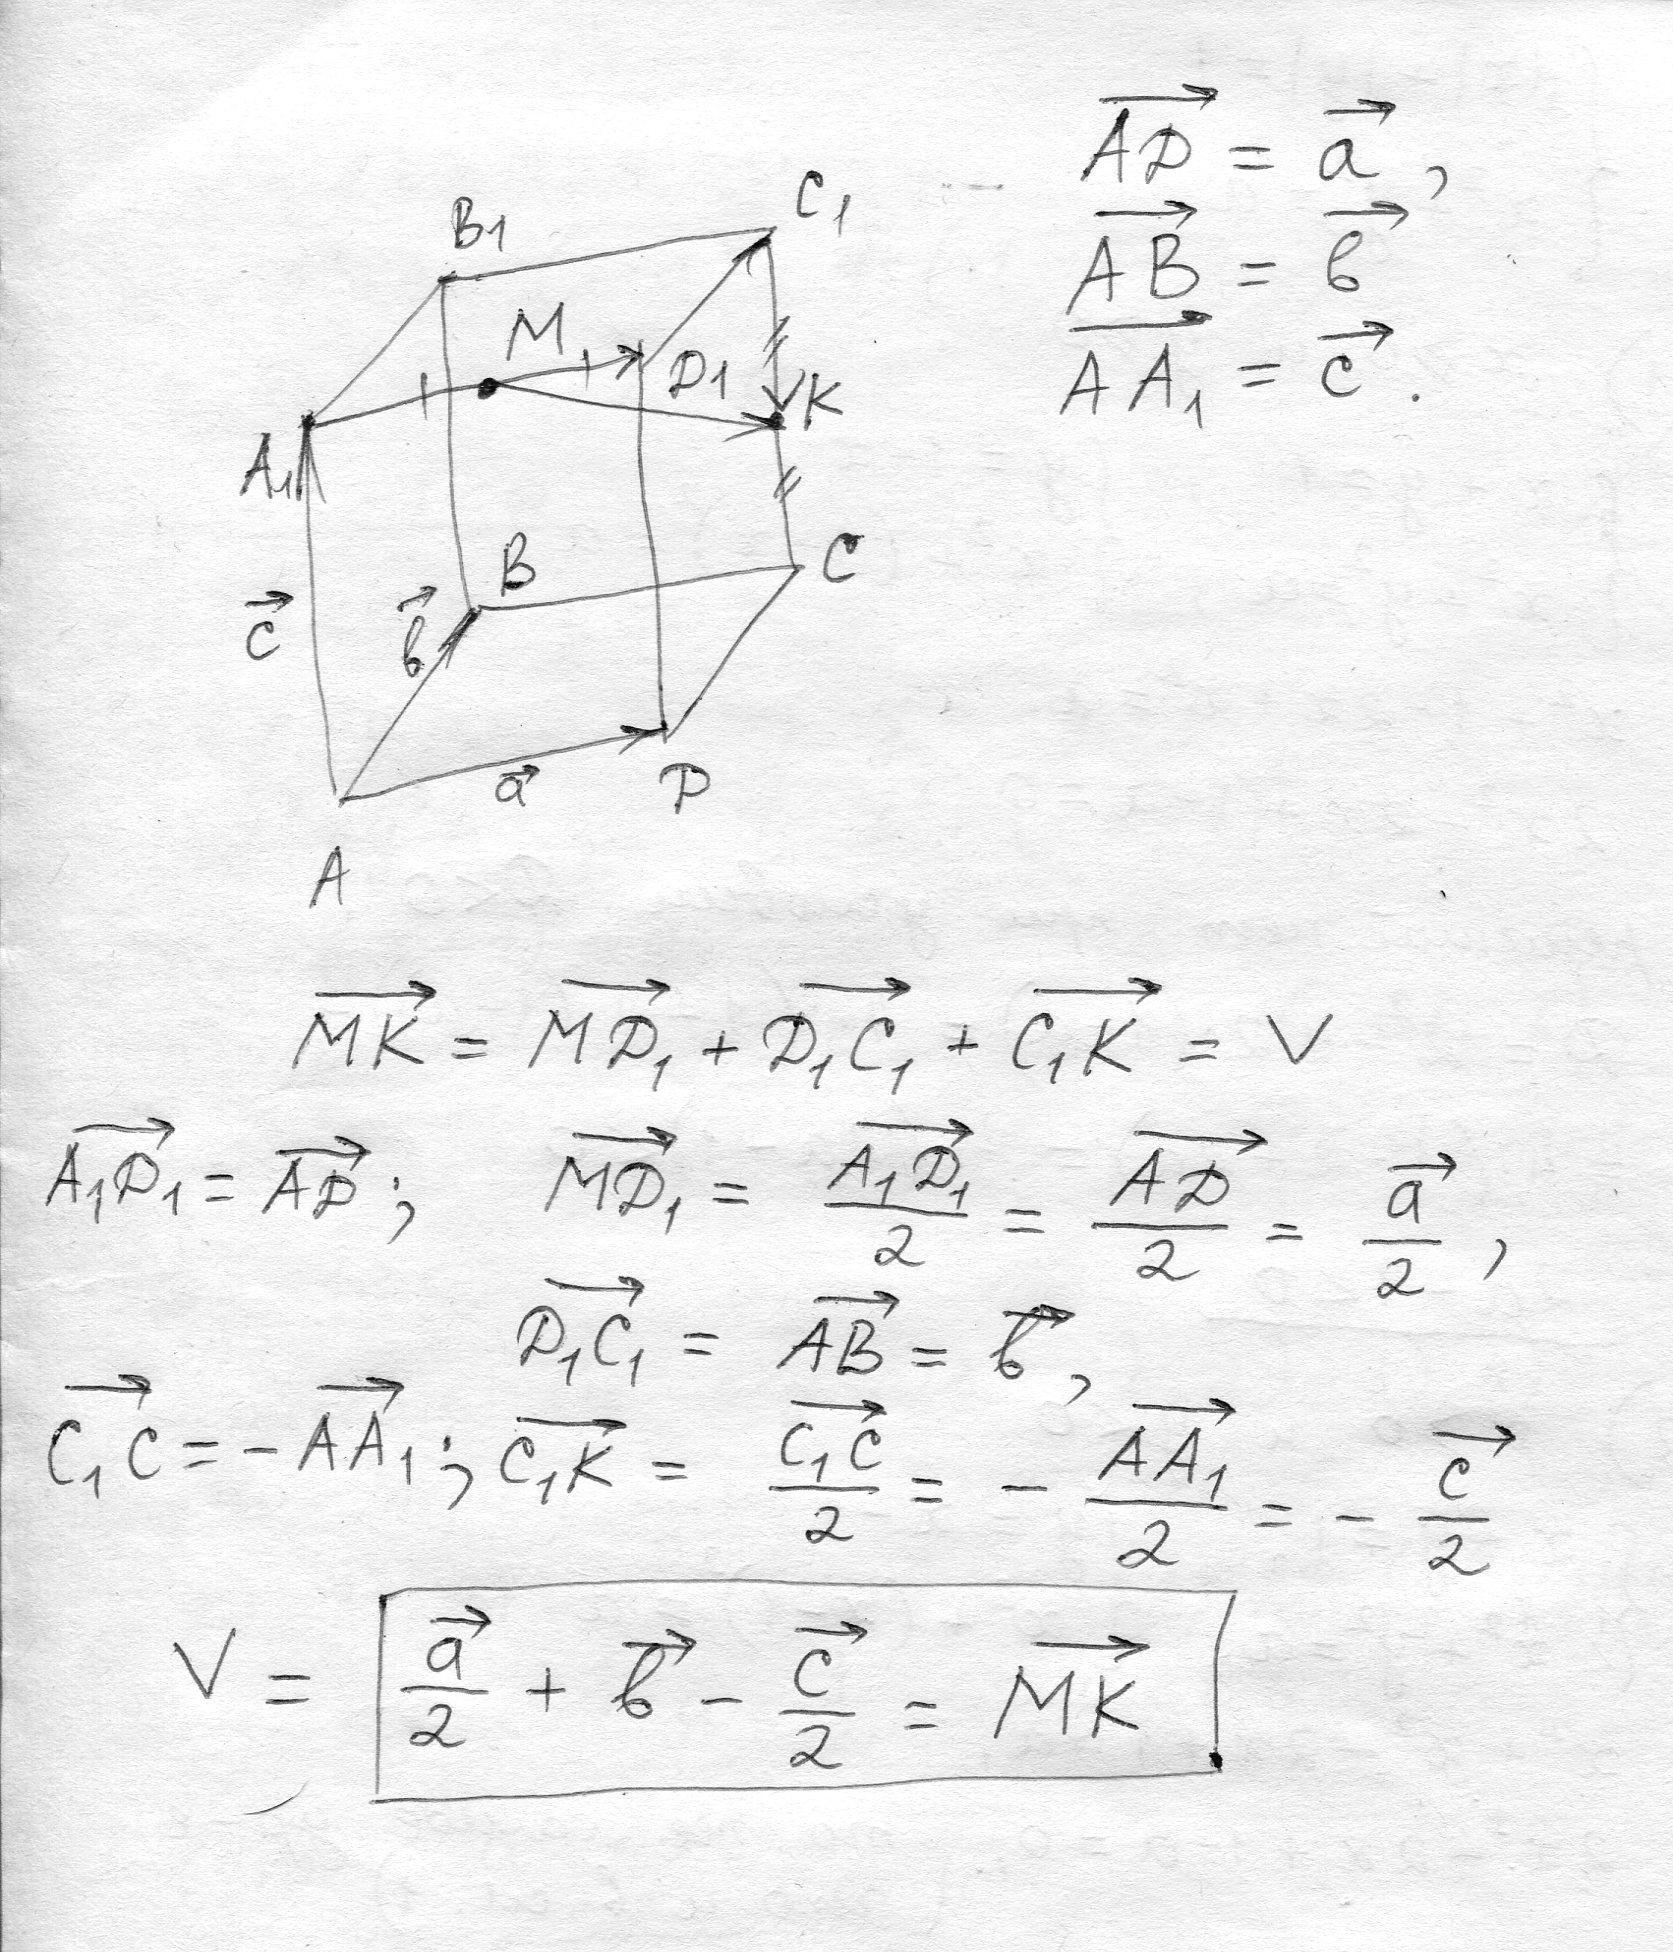 B₁
C₁
M
D₁
K
A₁
B
C
c⃗
b⃗
a⃗
D
A
A͞D⃗ = a⃗ ,
A͞B⃗ = b⃗
A͞A₁⃗ = c⃗ .
M͞K⃗ = M͞D₁⃗ + D₁͞C₁⃗ + C₁͞K⃗ = V
A₁͞D₁⃗ = A͞D⃗ ; M͞D₁⃗ = A₁͞D₁⃗/2 = A͞D⃗/2 = a⃗/2 ,
D₁͞C₁⃗ = A͞B⃗ = b⃗ ,
C₁͞C⃗ = - A͞A₁⃗ ; C₁͞K⃗ = C₁͞C⃗/2 = - A͞A₁⃗/2 = - c⃗/2
V = a⃗/2 + b⃗ - c⃗/2 = M͞K⃗ .